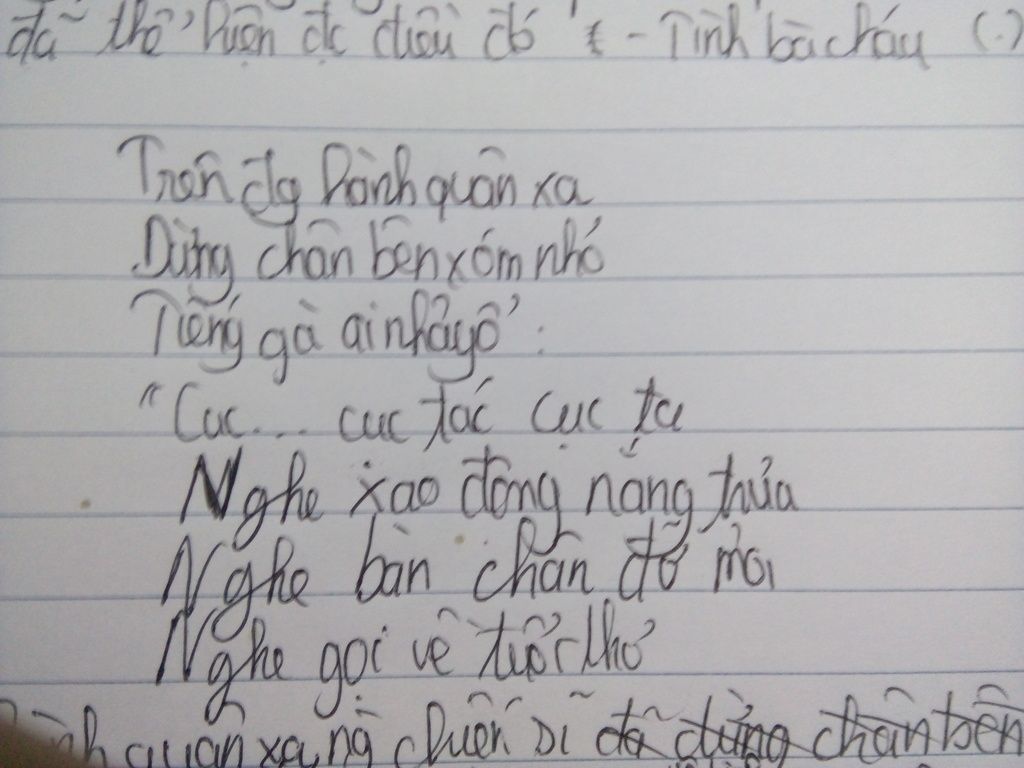 đã thể hiện đc điều đó - Tình bà cháu (.)
Trên đg hành quân xa
Dừng chân bên xóm nhỏ
Tiếng gà ai nhảy ổ :
"Cục... cục tác cục ta
Nghe xao động nắng trưa
Nghe bàn chân đỡ mỏi
Nghe gọi về tuổi thơ
quân xa, ng chiến sĩ đã dừng chân bên